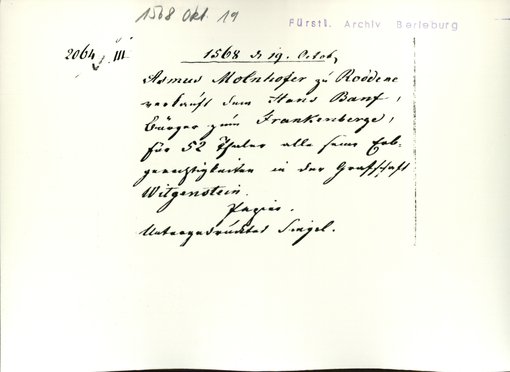 1568 Okt. 19
Fürstl. Archiv Berleburg
2064 III
1568 d. 19. Octob.
Asmus Molnhofer zu Roddene
verkauft dem Hans Banf,
Bürger zum Frankenberge,
für 52 Thaler alle seine Erb-
gerechtigkeiten in der Grafschaft
Witgenstein.
Papier.
Untergedrücktes Siegel.